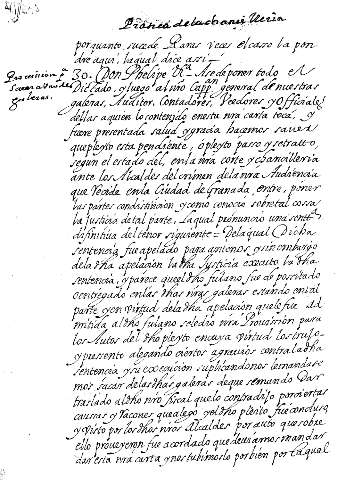 Practica de la chancilleria
porquanto, sucede raras veces el caso la pon
dre aqui, laqual dice asi =
Provision pa
sacar a uno de
galeras.
30. Don Phelipe Va. Ase de poner todo el
Dictado, y luego al nro Cappan general de nuestras
galeras, Auditor, Contadores, Veedores y officiales
dellas a quien lo contenido en esta nra carta toca, y
fuere presentada salud y gracia hacemos saver
que pleyto esta pendiente, o pleyto paso y se trato,
segun el estado del, en la nra corte y chancilleria
ante los Alcaldes del crimen de la nra Audiencia
que reside en la Ciudad de Granada, entre, poner
las partes con distincion y como conocio sobre tal cosa
la Justicia de tal parte, la qual pronuncio una sentª
difinitiva del tenor siguiente = De la qual Dicha
sentencia fue apelado por ambos, y sin embargo
de la dha apelacion la dha Justicia executo la dha
sentencia, y parece que el dho fulano fue depositado
o entregado en las dhas nras galeras estando en tal
parte y en virtud de la dha apelacion que le fue ad
mitida, al dho fulano se le dio nra Provission para
los Autos del dho pleyto en cuya virtud los trujo,
y presento alegando ciertos agravios contra la dha
sentencia y su execucion suplicandonos le mandase
mos sacar de las dhas galeras de que se mando Dar
traslado al dho nro fiscal que lo contradijo por ciertas
causas y racones que alego y el dho pleito fue concluso,
y visto por los dhos nros Alcaldes por auto que sobre
ello proveyeron fue acordado que deviamos mandar
dar esta nra carta y nos tubimoslo por bien por la qual